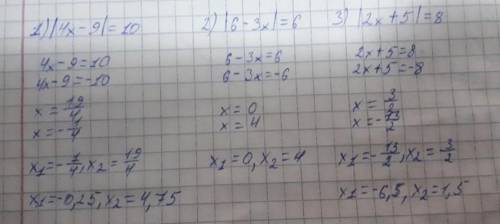 1) |4x-9|=10
4x-9=10
4x-9=-10
x=19/4
x=-1/4
x1=-1/4, x2=19/4
x1=-0,25, x2=4,75
2) |6-3x|=6
6-3x=6
6-3x=-6
x=0
x=4
x1=0, x2=4
3) |2x+5|=8
2x+5=8
2x+5=-8
x=3/2
x=-13/2
x1=-13/2, x2=3/2
x1=-6,5, x2=1,5